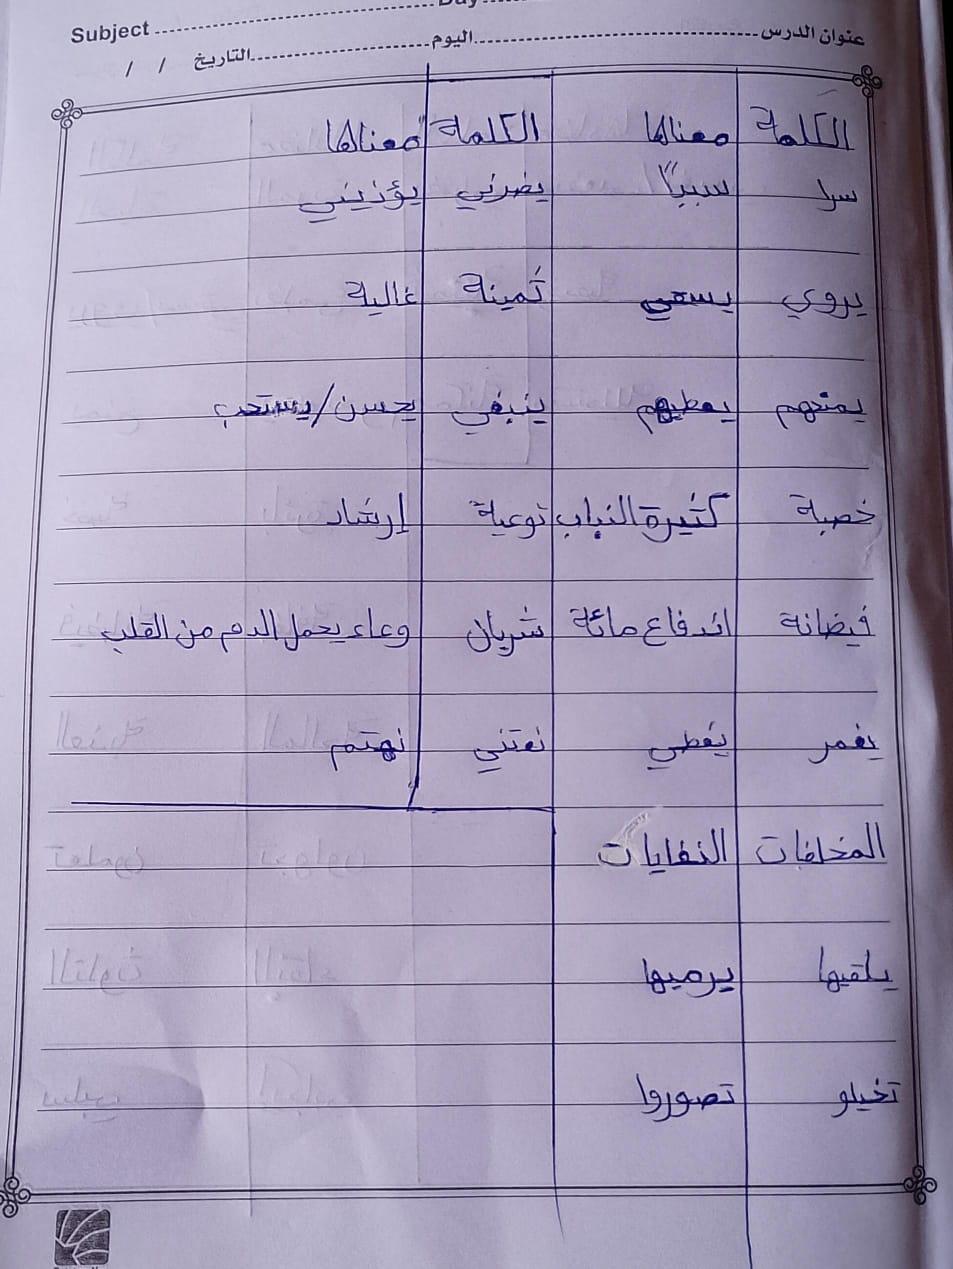 Subject
عنوان الدرس اليوم التاريخ / /
الكلمة معناها الكلمة معناها
سرا سببًا يضرني يؤذيني
يروي يسقي ثمينة غالية
يمنحهم يعطيهم ينبغي يحسن/يستحب
خصبة كثيرة النبات توعية إرشاد
فيضانه اندفاع مائة شريان وعاء يحمل الدم من القلب
يغمر يغطي نعتني نهتم
المخلفات النفايات
يلقيها يرميها
تخيلو تصوروا